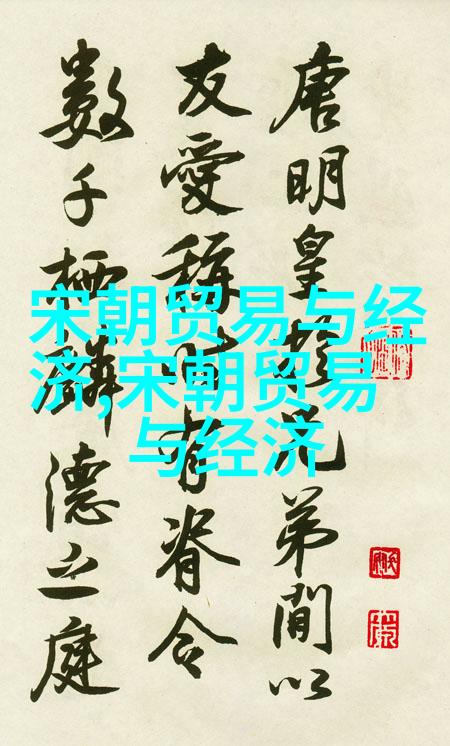 唐明皇於兄弟間以
友愛稱時有脊令
數千栖麟德之庭
宋朝贸易与经
济,宋朝贸易
与经济